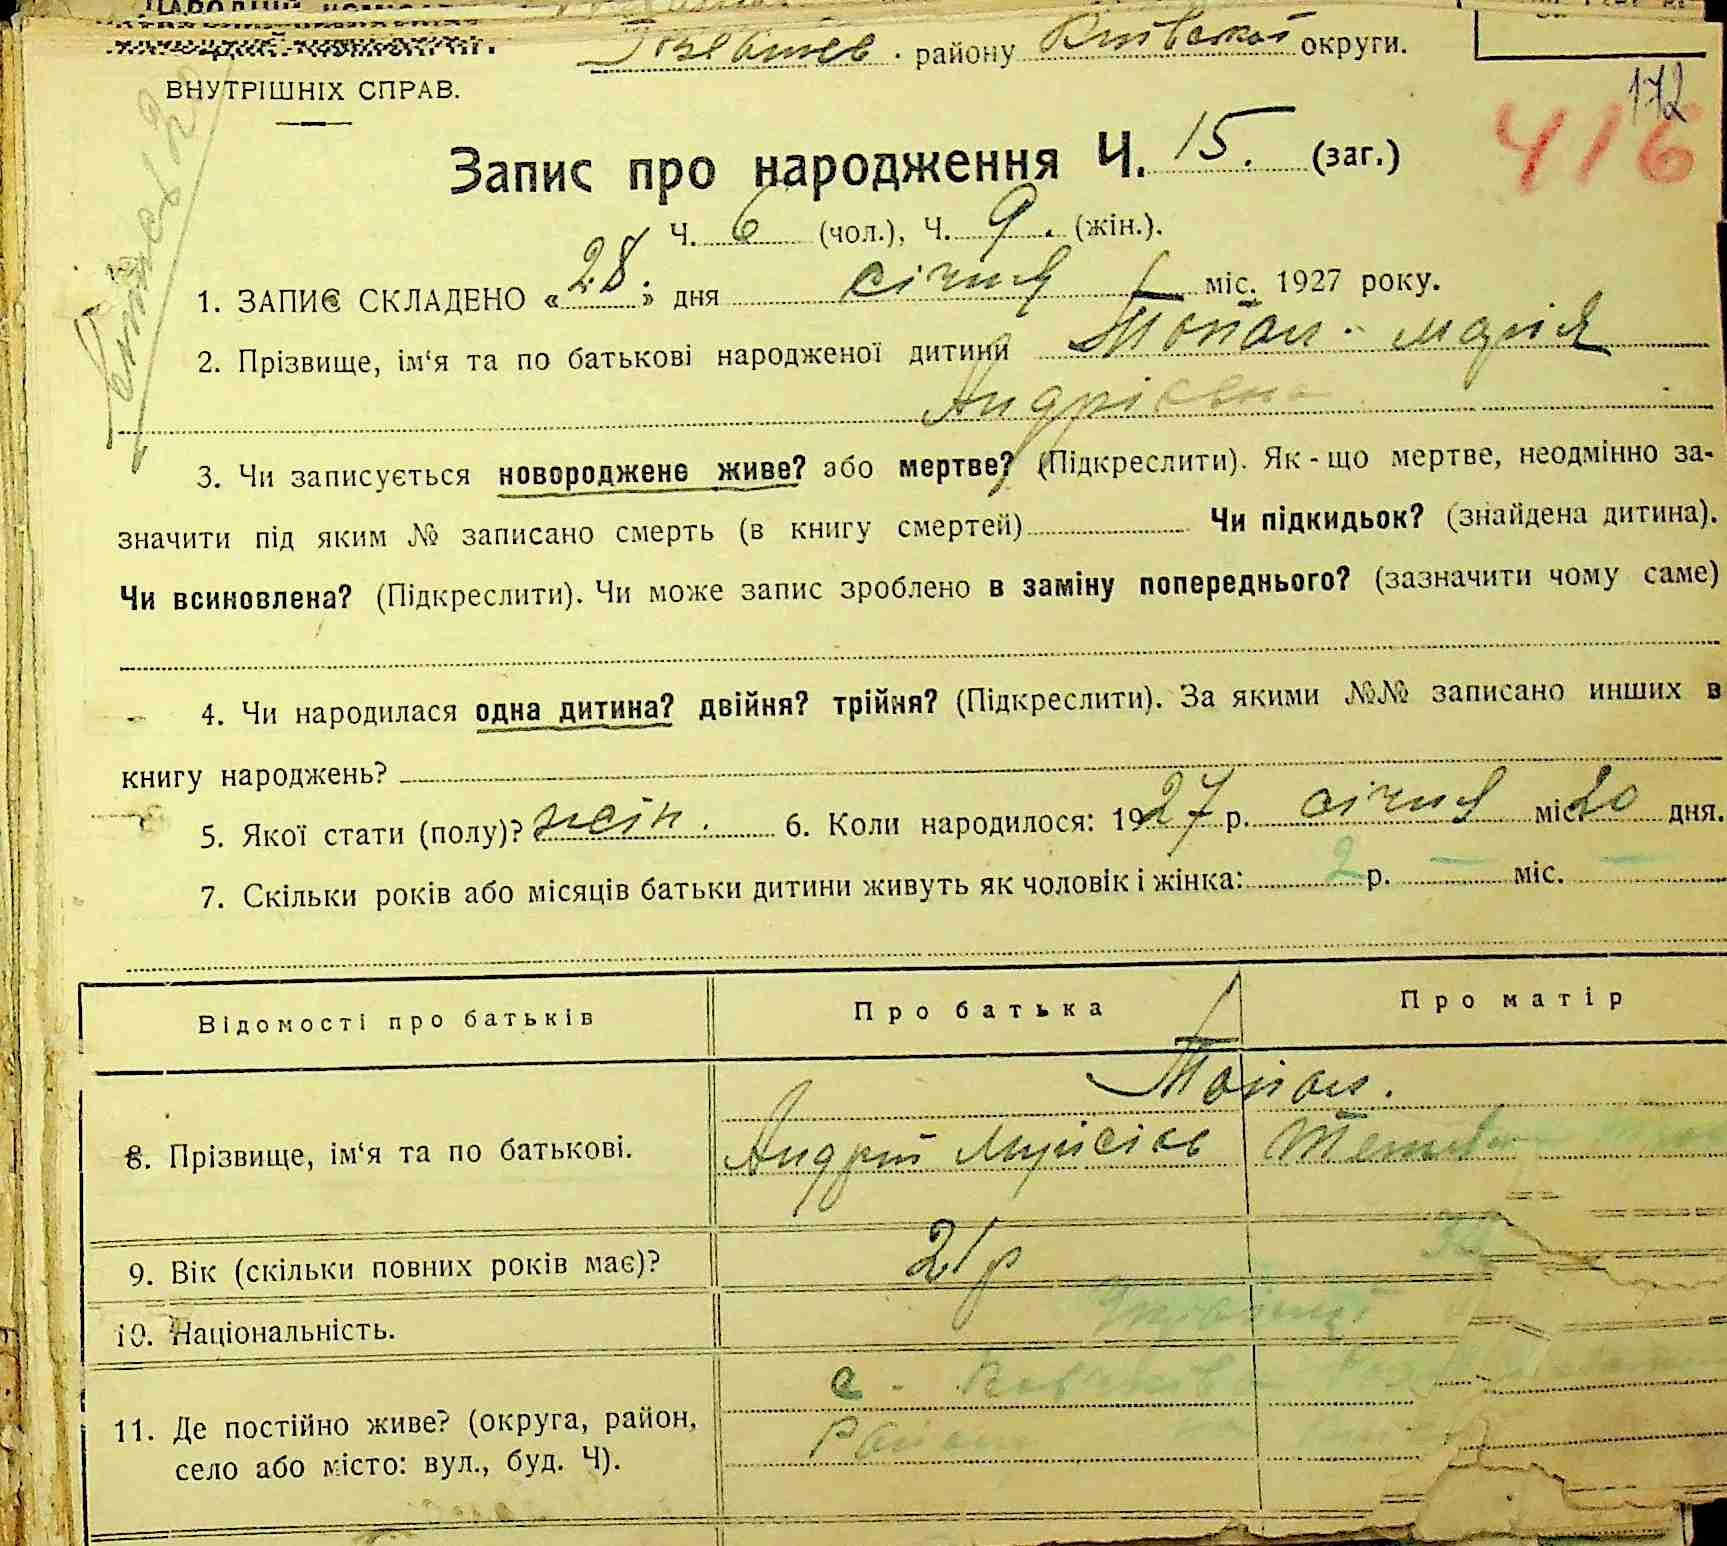 району Київської округи.
ВНУТРІШНІХ СПРАВ.
172
416
Запис про народження Ч. 15. (заг.)
Ч. 6 (чол.), Ч. 9. (жін.).
1. ЗАПИС СКЛАДЕНО «28» дня січня міс. 1927 року.
2. Прізвище, ім‘я та по батькові народженої дитини Топал Марія
Андрієвна
3. Чи записується новороджене живе? або мертве? (Підкреслити). Як-що мертве, неодмінно за-
значити під яким № записано смерть (в книгу смертей) Чи підкидьок? (знайдена дитина).
Чи всиновлена? (Підкреслити). Чи може запис зроблено в заміну попереднього? (зазначити чому саме)
4. Чи народилася одна дитина? двійня? трійня? (Підкреслити). За якими №№ записано инших в
книгу народжень?
5. Якої стати (полу)? жін. 6. Коли народилося: 1927 р. січня міс. 20 дня.
7. Скільки років або місяців батьки дитини живуть як чоловік і жінка: 2 р. — міс. —
Відомості про батьків Про батька Про матір
Топал.
8. Прізвище, ім‘я та по батькові. Андрій
9. Вік (скільки повних років має)? 21 р
10. Національність.
11. Де постійно живе? (округа, район,
село або місто: вул., буд. Ч).
с.